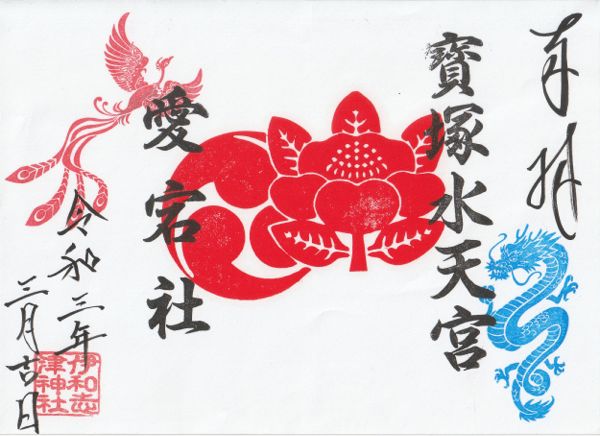 奉拝
寳塚水天宮
愛宕社
令和三年
三月吉日
伊和志
津神社